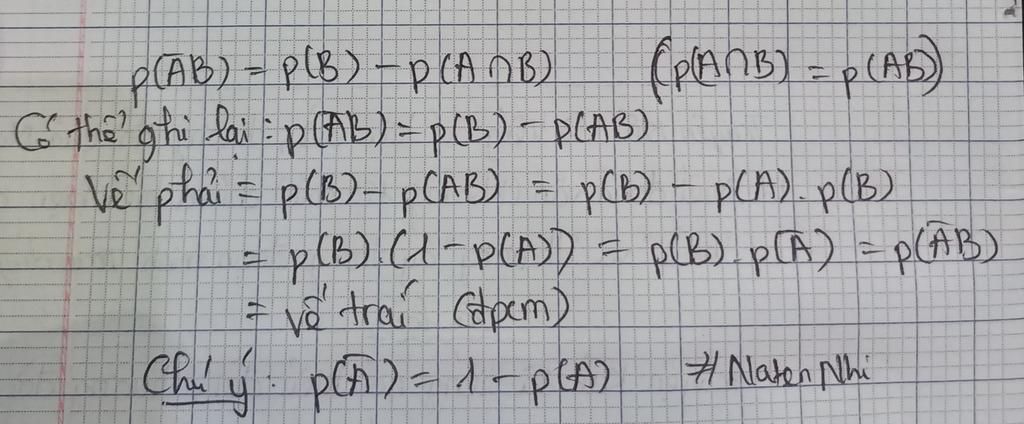 p(A̅B) = p(B) - p(A∩B) (p(A∩B) = p(AB))
Có thể ghi lại: p(A̅B) = p(B) - p(AB)
Vế phải = p(B) - p(AB) = p(B) - p(A). p(B)
= p(B).(1 - p(A)) = p(B). p(A̅) = p(A̅B)
= vế trái (đpcm)
Chú ý: p(A̅) = 1 - p(A) #NatenNhi